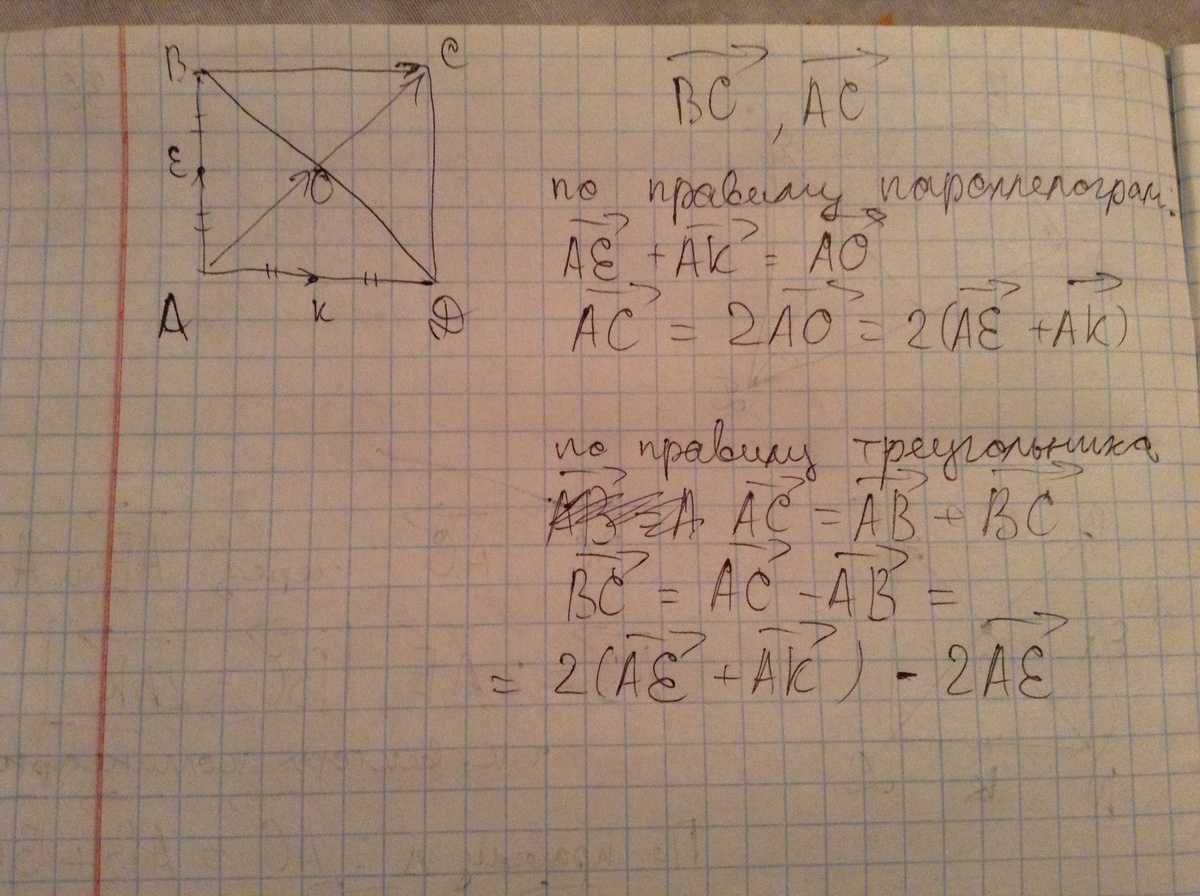 B C
Ɛ
O
A K D
BC, AC
по правилу пароллелограм.
AƐ + AK = AO
AC = 2AO = 2(AƐ + AK)
по правилу треугольника
AC = AB + BC
BC = AC - AB =
= 2(AƐ + AK) - 2AƐ